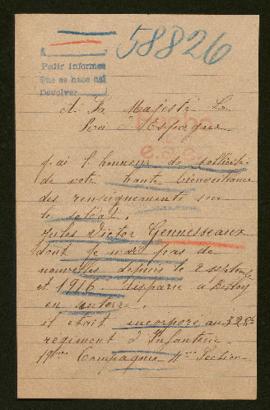 58826
Pedir informes
Que se hace
Devolver
A Sa Majesté Le
Roi d'Espagne
j'ai l'honneur de solliciter
de votre haute bienveillance
des renseignements sur
le soldat
Jules Victor Gennesseaux
dont je n'ai pas de
nouvelles depuis le 2 septembre
1916 disparu à
en
et était incorporé au 328e
regiment d'Infanterie
Compagnie Section